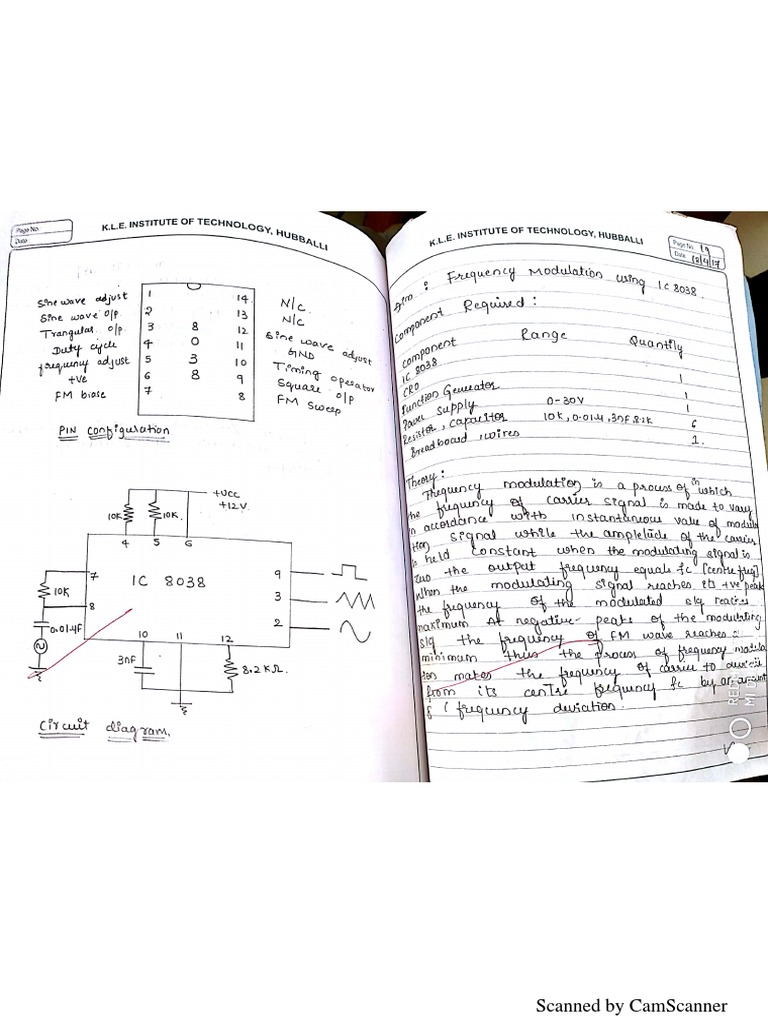 Page No.
Date
K.L.E. INSTITUTE OF TECHNOLOGY, HUBBALLI
Sine wave adjust 1 14 N/C.
Sine wave o/p. 2 13 N/C
Trangular o/p 3 8 12 Sine wave adjust
Duty cycle 4 0 11 GND
frequency adjust 5 3 10 Timing operator
+ve 6 8 9 Square o/p
FM biase 7 8 FM Sweep
PIN configuration
+VCC
+12V.
10K 10K.
4 5 6
7 IC 8038 9
10K 3
8 2
0.01µF
10 11 12
3nF 8.2KΩ.
Circuit diagram.
K.L.E. INSTITUTE OF TECHNOLOGY, HUBBALLI
Page No. 19
Date 18/4/17
Aim : Frequency Modulation using IC 8038.
Component Required :
Component Range Quantity
IC 8038
CRO 1
Function Generator 1
Power supply 0-30V 1
Resistor, capacitor 10K, 0.01µ, 3nF, 8.2K 6
Breadboard, wires 1.
Theory :
Frequency modulation is a process of in which
the frequency of carrier signal is made to vary
in accordance with instantaneous value of modula
tion signal while the ampletude of the carrier
is held constant when the modulating signal is
zero the output frequency equals fc [centre freq]
When the modulating signal reaches its +ve peak
the frequency of the modulated sig reaches
maximum At negative peaks of the modulating
sig the frequency of FM wave reaches
minimum thus the process of frequency modula
tion makes the frequency of carrier to
from its centre frequency fc by an amount
( frequency deviation.
Scanned by CamScanner